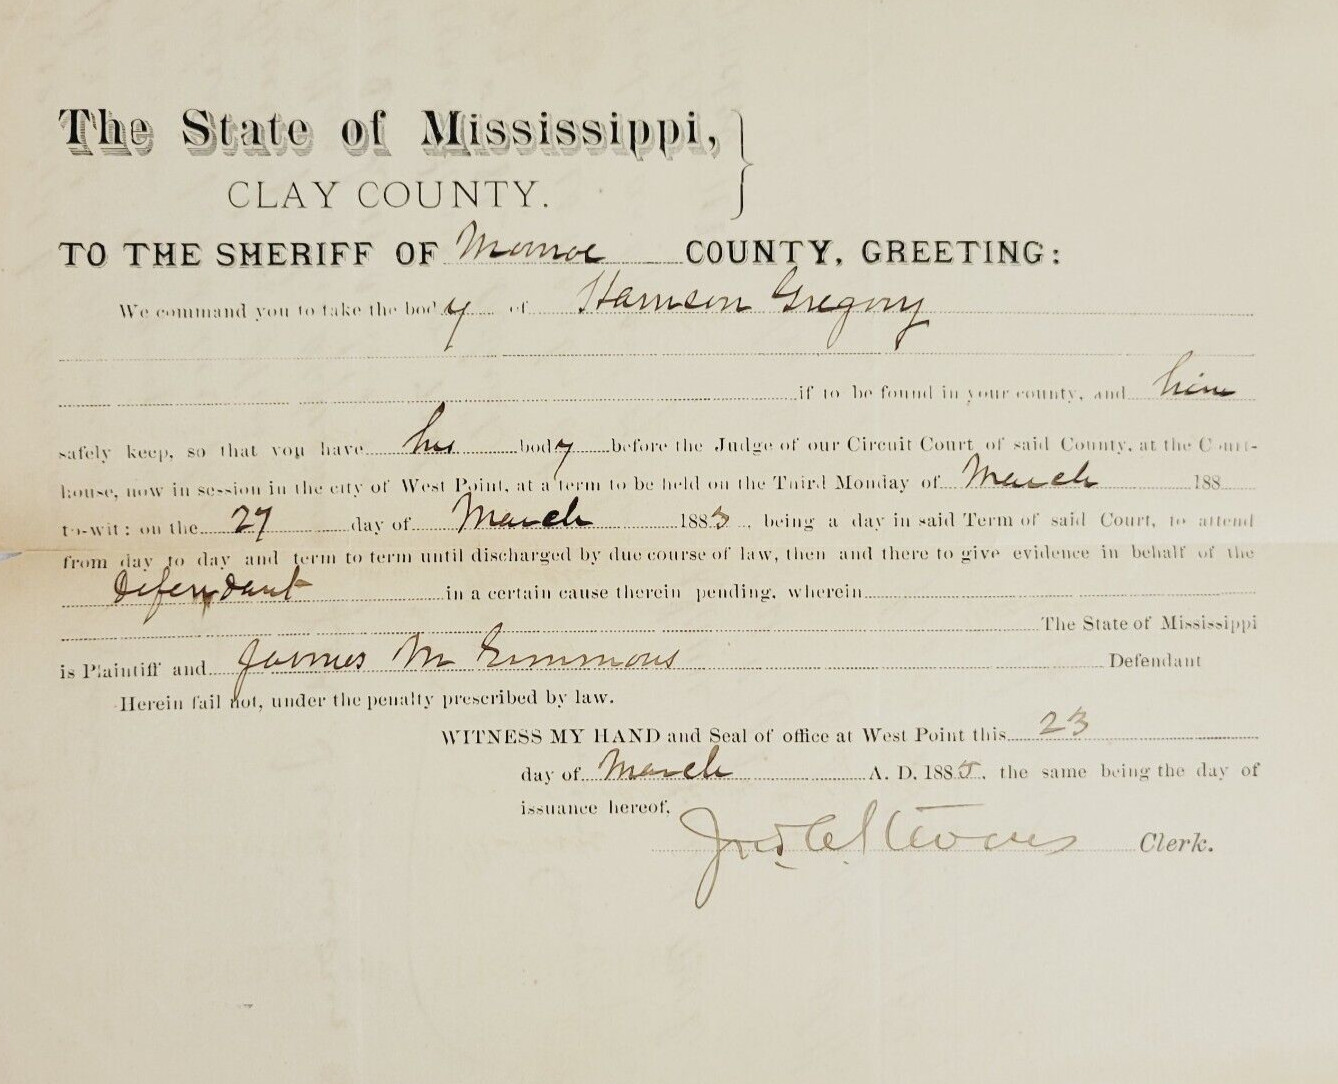 The State of Mississippi,
CLAY COUNTY.
TO THE SHERIFF OF Monroe COUNTY, GREETING:
We command you to take the body of Harrison Gregory
if to be found in your county, and him
safely keep, so that you have his body before the Judge of our Circuit Court of said County, at the Court-
house, now in session in the city of West Point, at a term to be held on the Third Monday of March 188
to-wit: on the 27 day of March 1885, being a day in said Term of said Court, to attend
from day to day and term to term until discharged by due course of law, then and there to give evidence in behalf of the
Defendant in a certain cause therein pending, wherein
The State of Mississippi
is Plaintiff and James M Simmons Defendant
Herein fail not, under the penalty prescribed by law.
WITNESS MY HAND and Seal of office at West Point this 23
day of March A. D. 1885, the same being the day of
issuance hereof.
Stevens Clerk.